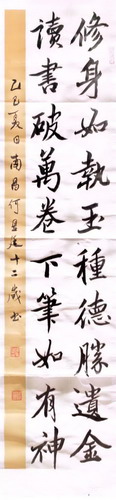 修身如執玉種德勝遺金
讀書破萬卷下筆如有神
乙巳夏日南昌何昱老十二歲書